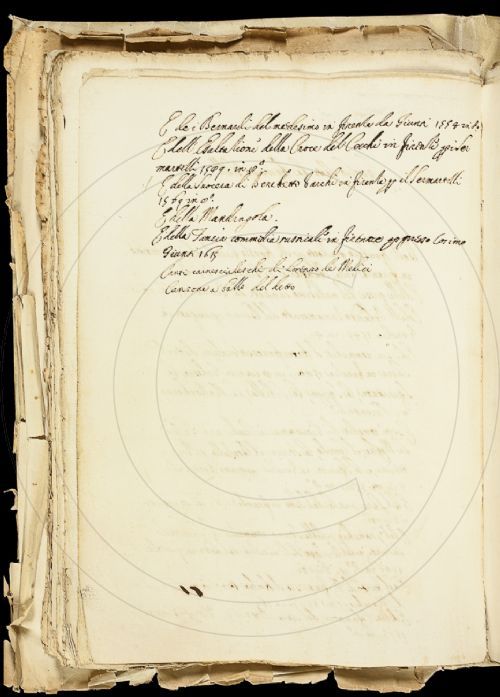 E de i Bernardi del medesimo in firenze da Giunti 1554 in 8º
E dell'Esaltazione della Croce del Cecchi in firenze
martelli 1589. in 8º.
E della Suocera di Benedetto Varchi in firenze il Sermartelli
1569 in 8º.
E della Mandragola.
E della Tancia commedia rusticale in firenze Cosimo
Giunti 1615
Canti carnescialeschi di Lorenzo de Medici
Canzoni a ballo del detto